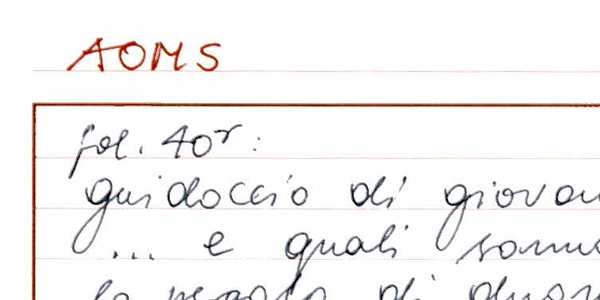 AOMS
fol. 40r:
guidoccio di giovan
... e quali sonno
la di